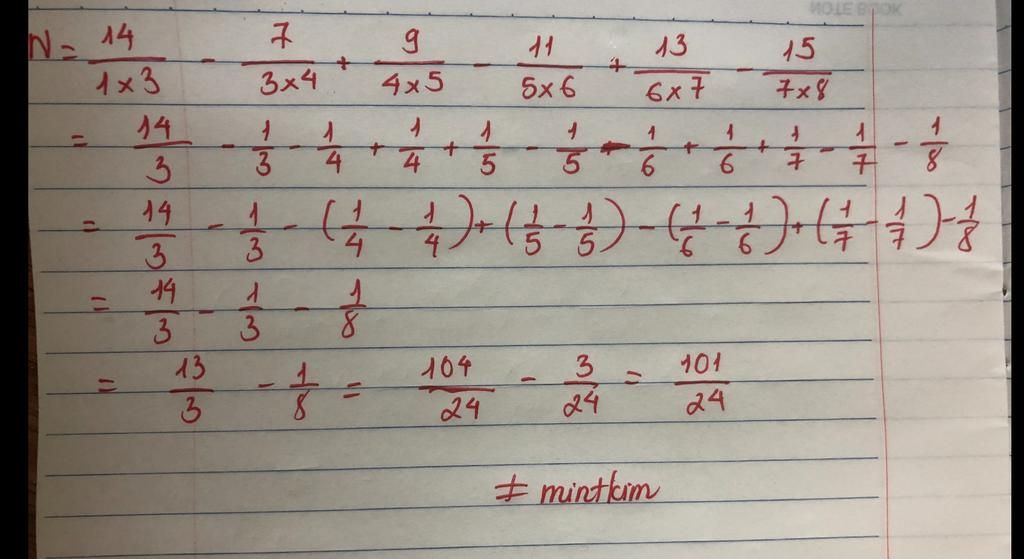 NOTE BOOK
N = 14/(1×3) - 7/(3×4) + 9/(4×5) - 11/(5×6) + 13/(6×7) - 15/(7×8)
= 14/3 - 1/3 - 1/4 + 1/4 + 1/5 - 1/5 - 1/6 + 1/6 + 1/7 - 1/7 - 1/8
= 14/3 - 1/3 - (1/4 - 1/4) + (1/5 - 1/5) - (1/6 - 1/6) + (1/7 - 1/7) - 1/8
= 14/3 - 1/3 - 1/8
= 13/3 - 1/8 = 104/24 - 3/24 = 101/24
# mintkim